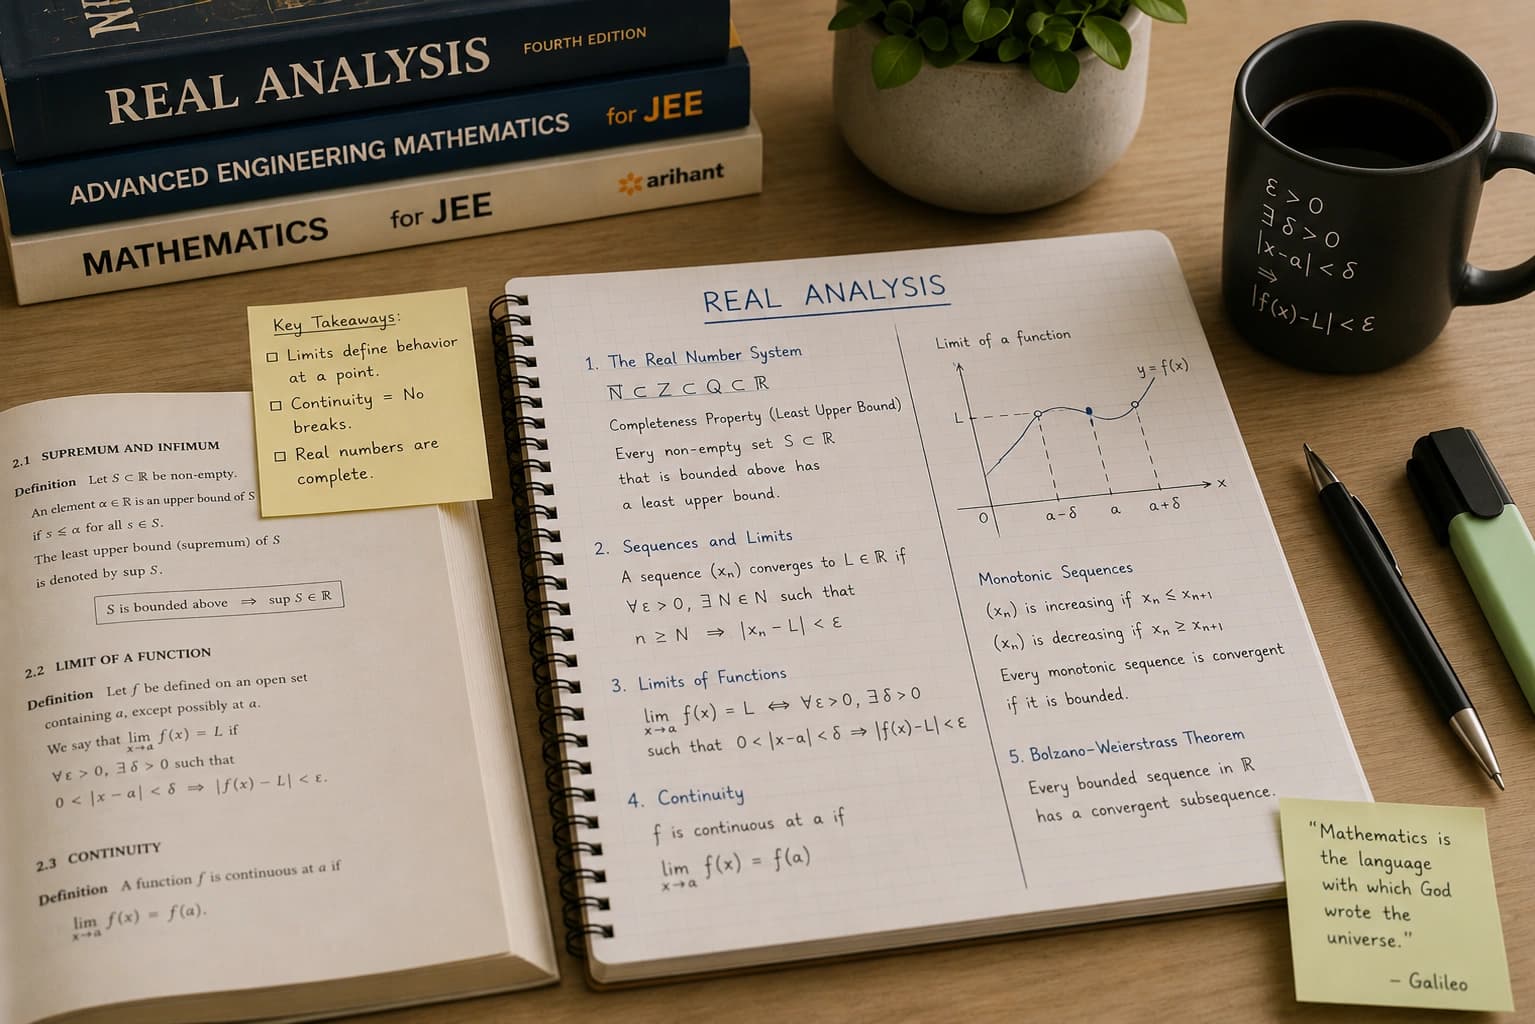 REAL ANALYSIS FOURTH EDITION
ADVANCED ENGINEERING MATHEMATICS for JEE
MATHEMATICS for JEE arihant
ε > 0
∃ δ > 0
|x-a| < δ
⇒
|f(x)-L| < ε
Key Takeaways:
☐ Limits define behavior
at a point.
☐ Continuity = No
breaks.
☐ Real numbers are
complete.
2.1 SUPREMUM AND INFIMUM
Definition Let S ⊂ ℝ be non-empty.
An element α ∈ ℝ is an upper bound of S
if s ≤ α for all s ∈ S.
The least upper bound (supremum) of S
is denoted by sup S.
S is bounded above ⇒ sup S ∈ ℝ
2.2 LIMIT OF A FUNCTION
Definition Let f be defined on an open set
containing a, except possibly at a.
We say that lim x→a f(x) = L if
∀ ε > 0, ∃ δ > 0 such that
0 < |x − a| < δ ⇒ |f(x) − L| < ε.
2.3 CONTINUITY
Definition A function f is continuous at a if
lim x→a f(x) = f(a).
REAL ANALYSIS
1. The Real Number System
N ⊂ Z ⊂ Q ⊂ ℝ
Completeness Property (Least Upper Bound)
Every non-empty set S ⊂ ℝ
that is bounded above has
a least upper bound.
2. Sequences and Limits
A sequence (xₙ) converges to L ∈ ℝ if
∀ ε > 0, ∃ N ∈ N such that
n ≥ N ⇒ |xₙ - L| < ε
3. Limits of Functions
lim x→a f(x) = L ⇔ ∀ ε > 0, ∃ δ > 0
such that 0 < |x-a| < δ ⇒ |f(x)-L| < ε
4. Continuity
f is continuous at a if
lim x→a f(x) = f(a)
Limit of a function
y = f(x)
L
x
0 a-δ a a+δ
Monotonic Sequences
(xₙ) is increasing if xₙ ≤ xₙ₊₁
(xₙ) is decreasing if xₙ ≥ xₙ₊₁
Every monotonic sequence is convergent
if it is bounded.
5. Bolzano-Weierstrass Theorem
Every bounded sequence in ℝ
has a convergent subsequence.
"Mathematics is
the language
with which God
wrote the
universe."
– Galileo